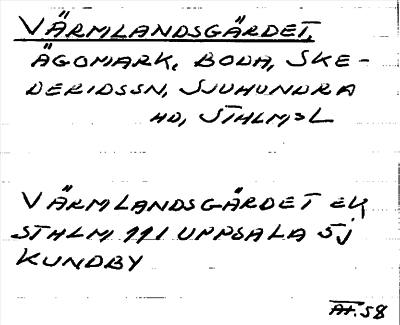 VÄRMLANDSGÄRDET,
ÄGOMARK, BODA, SKE-
DERIDSSN, SJUHUNDRA
HD, STHLMSL
VÄRMLANDSGÄRDET EK
STHLM 111 UPPSALA 5j
KUNDBY
At. 58